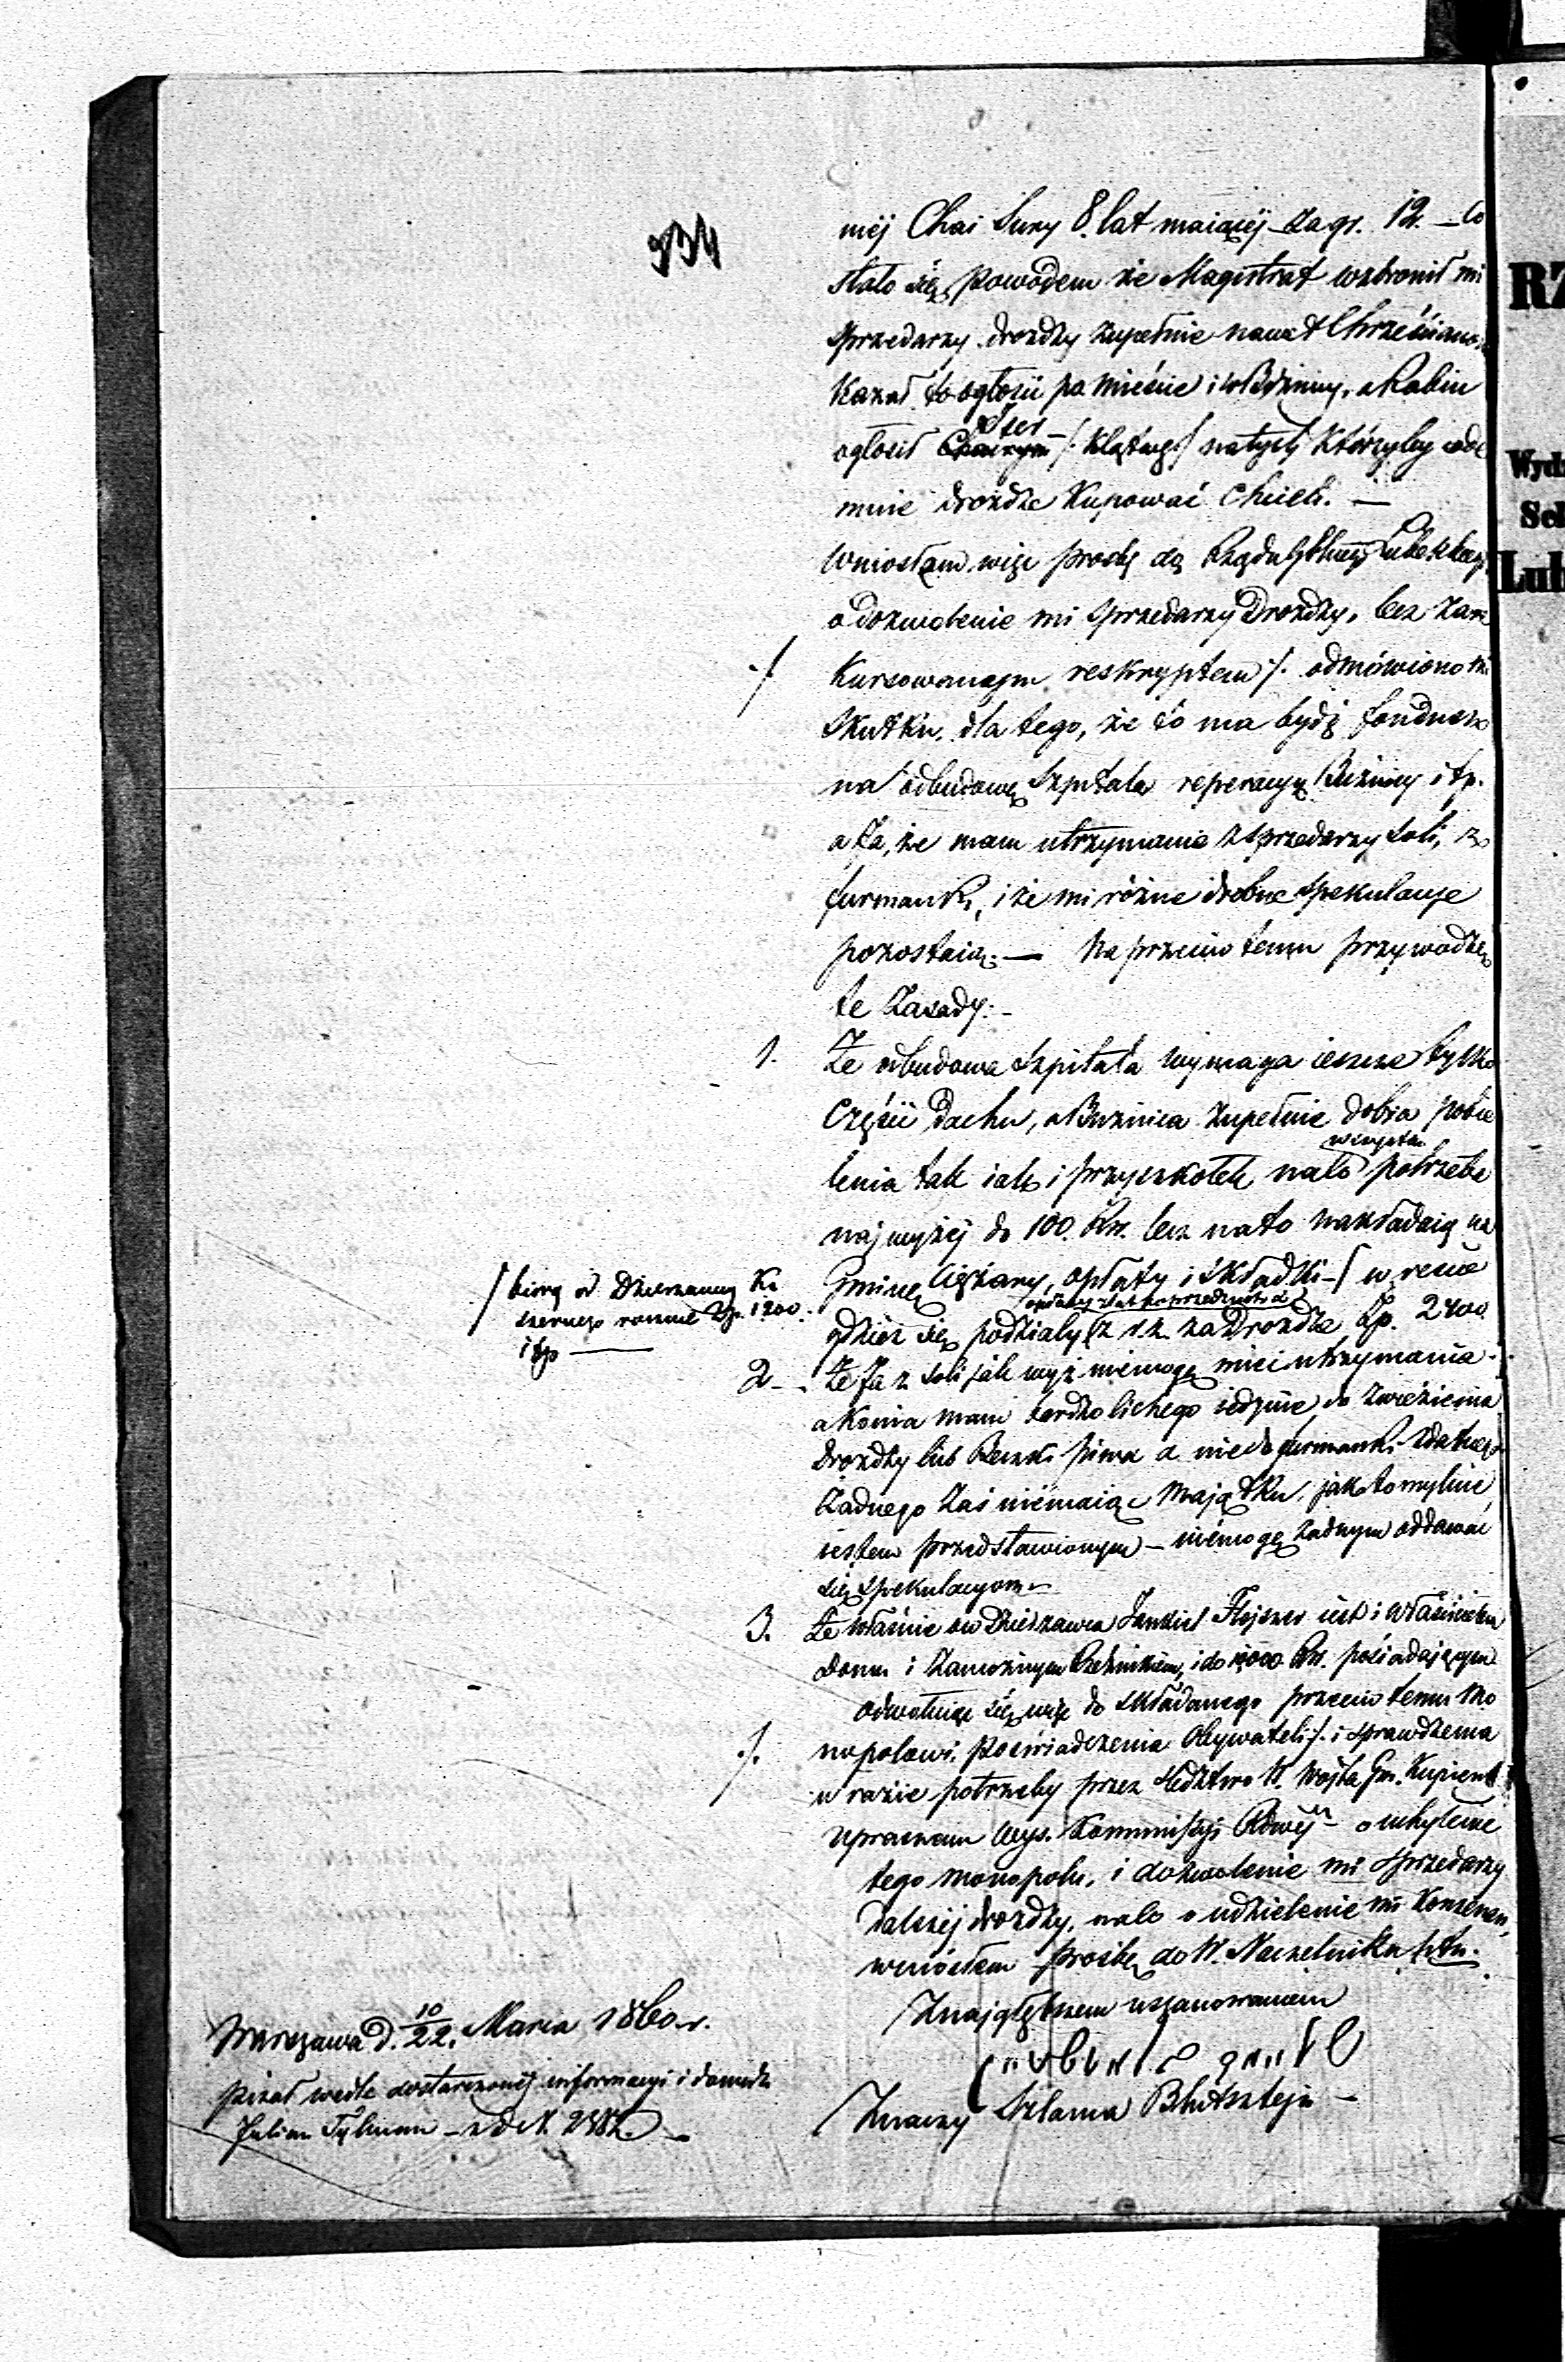 334
mej Chai Sury 8. lat maiącej za gr. 12. – Co
stało się powodem że Magistrat wzbronił mi
sprzedarzy drożdży zupełnie nawet Chrześcianom
kazał to ogłosić po mieście i w Bóżnicy, a Rabin
Szer
ogłosił Chaerym /: Klątwę :/ na tych którzyby ode
mnie drożdże kupować chcieli. —
Wniosłam więc prośbę do Rządu Gubern. Lubelskiego
o dozwolenie mi sprzedarzy Drożdży, lecz zare
./. kursowanym reskryptem ./. odmówiono mi
skutku, dla tego, że to ma bydź fundusz
na odbudowę Szpitala reperacyę Bóżnicy i tp.
a Ja, że mam utrzymanie z sprzedarzy Soli, z
furmanki, i że mi różne drobne spekulacye
pozostaią. — Na przeciw temu przywodzę
te Zasady: –
1. Że odbudowa Szpitala wymaga ieszcze tylko
Części Dachu, a Bóżnica zupełnie dobra pobie
lenia tak iak i przyszkołek na to
wszystko
potrzeba
najwyżej do 100. Rs. lecz na to nakładaią na
Gminę Ciężary, opłaty i składki – / w rece
/ biorą od Dzierzawcy Ko
szernego rocznie Zp. 1200.
i tp —
opłaty
gdzież się podziały z r. z. za Drożdże Zp. 2400
2. – Że Ja z Soli jak wyż niemogę mieć utrzymania –
a Konia mam bardzo lichego iedynie do zwiezienia
Drożdży lub Beczki piwa a nie do furmanki zdatnego
Żadnego zaś niemaiąc Majątku, jak to mylnie
iestem przedstawionym – niemogę żadnym oddawać
się spekulacyom –
3. Że właśnie ów Dzierzawca Jankiel Flejszer iest i właścicielem
Domu i zamożnym Rzeźnikiem, i do Rs. posiadającym
odwołuiąc się więc do składanego przeciw temu Mo
./. nopolowi, poświadczenia Obywateli ./. i sprawdzenia
w razie potrzeby przez śledztwo W. Wójta Gm.
upraszam Wys. Kommissyi Rządowej – o uchylenie
tego monopolu, i dozwolenie mi sprzedarzy
dalszej drożdży, na co o udzielenie mi Konsensu,
wniosłem prośbę do W. Naczelnika Ptu.
Z najgłębszem uszanowaniem
Znaczy Szlama Blutsztejn –
Warszawa d. 10/22. Marca 1860. r.
pisał wedle dostarczonej informacyi i dowodu
Julian Tylman –
RZ
Wyd
Sel
Lub